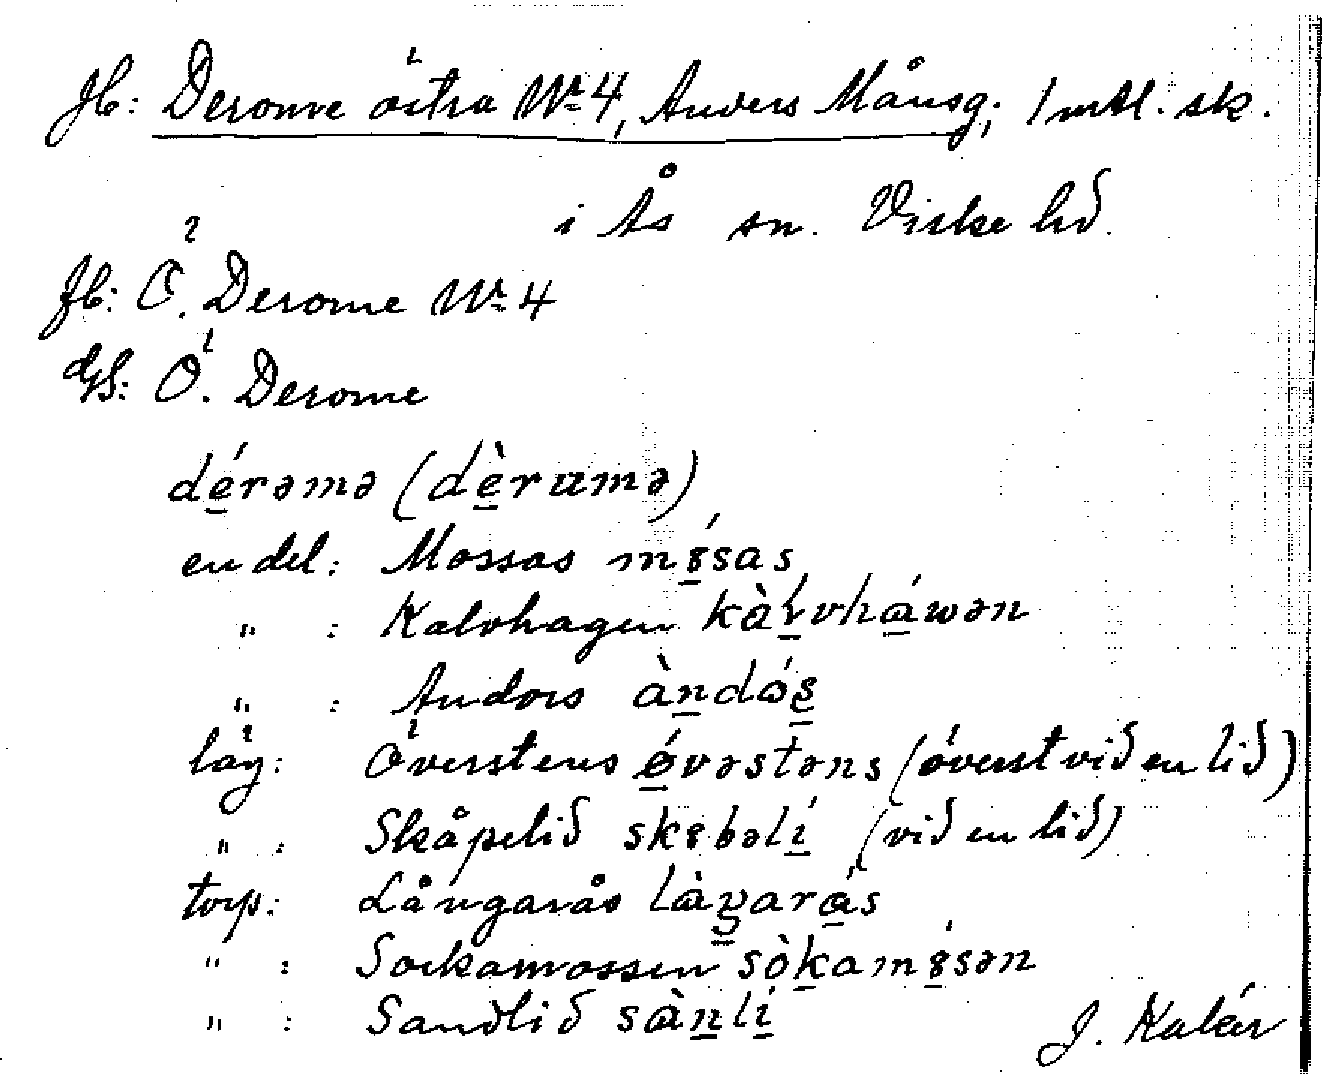 Jb: Derome östra Nr 4, Anders Månsg; 1 mtl. sk.
i Ås sn. Viske hd.
Jb: Ö. Derome Nr 4
GS: Ö. Derome
dérəmə (dèrumə)
en del: Mossas mɷ́sas
" : Kalvhagen kàḷvháwən
" : Andors àndós
läg: Överstens ǿvəstəns (överst vid en lid)
" : Skåpelid skɷbəlí (vid en lid)
torp: Långarås làŋarás
" : Sockamossen sòkamɷ́sən
" : Sandlid sànlí
J. Kalén